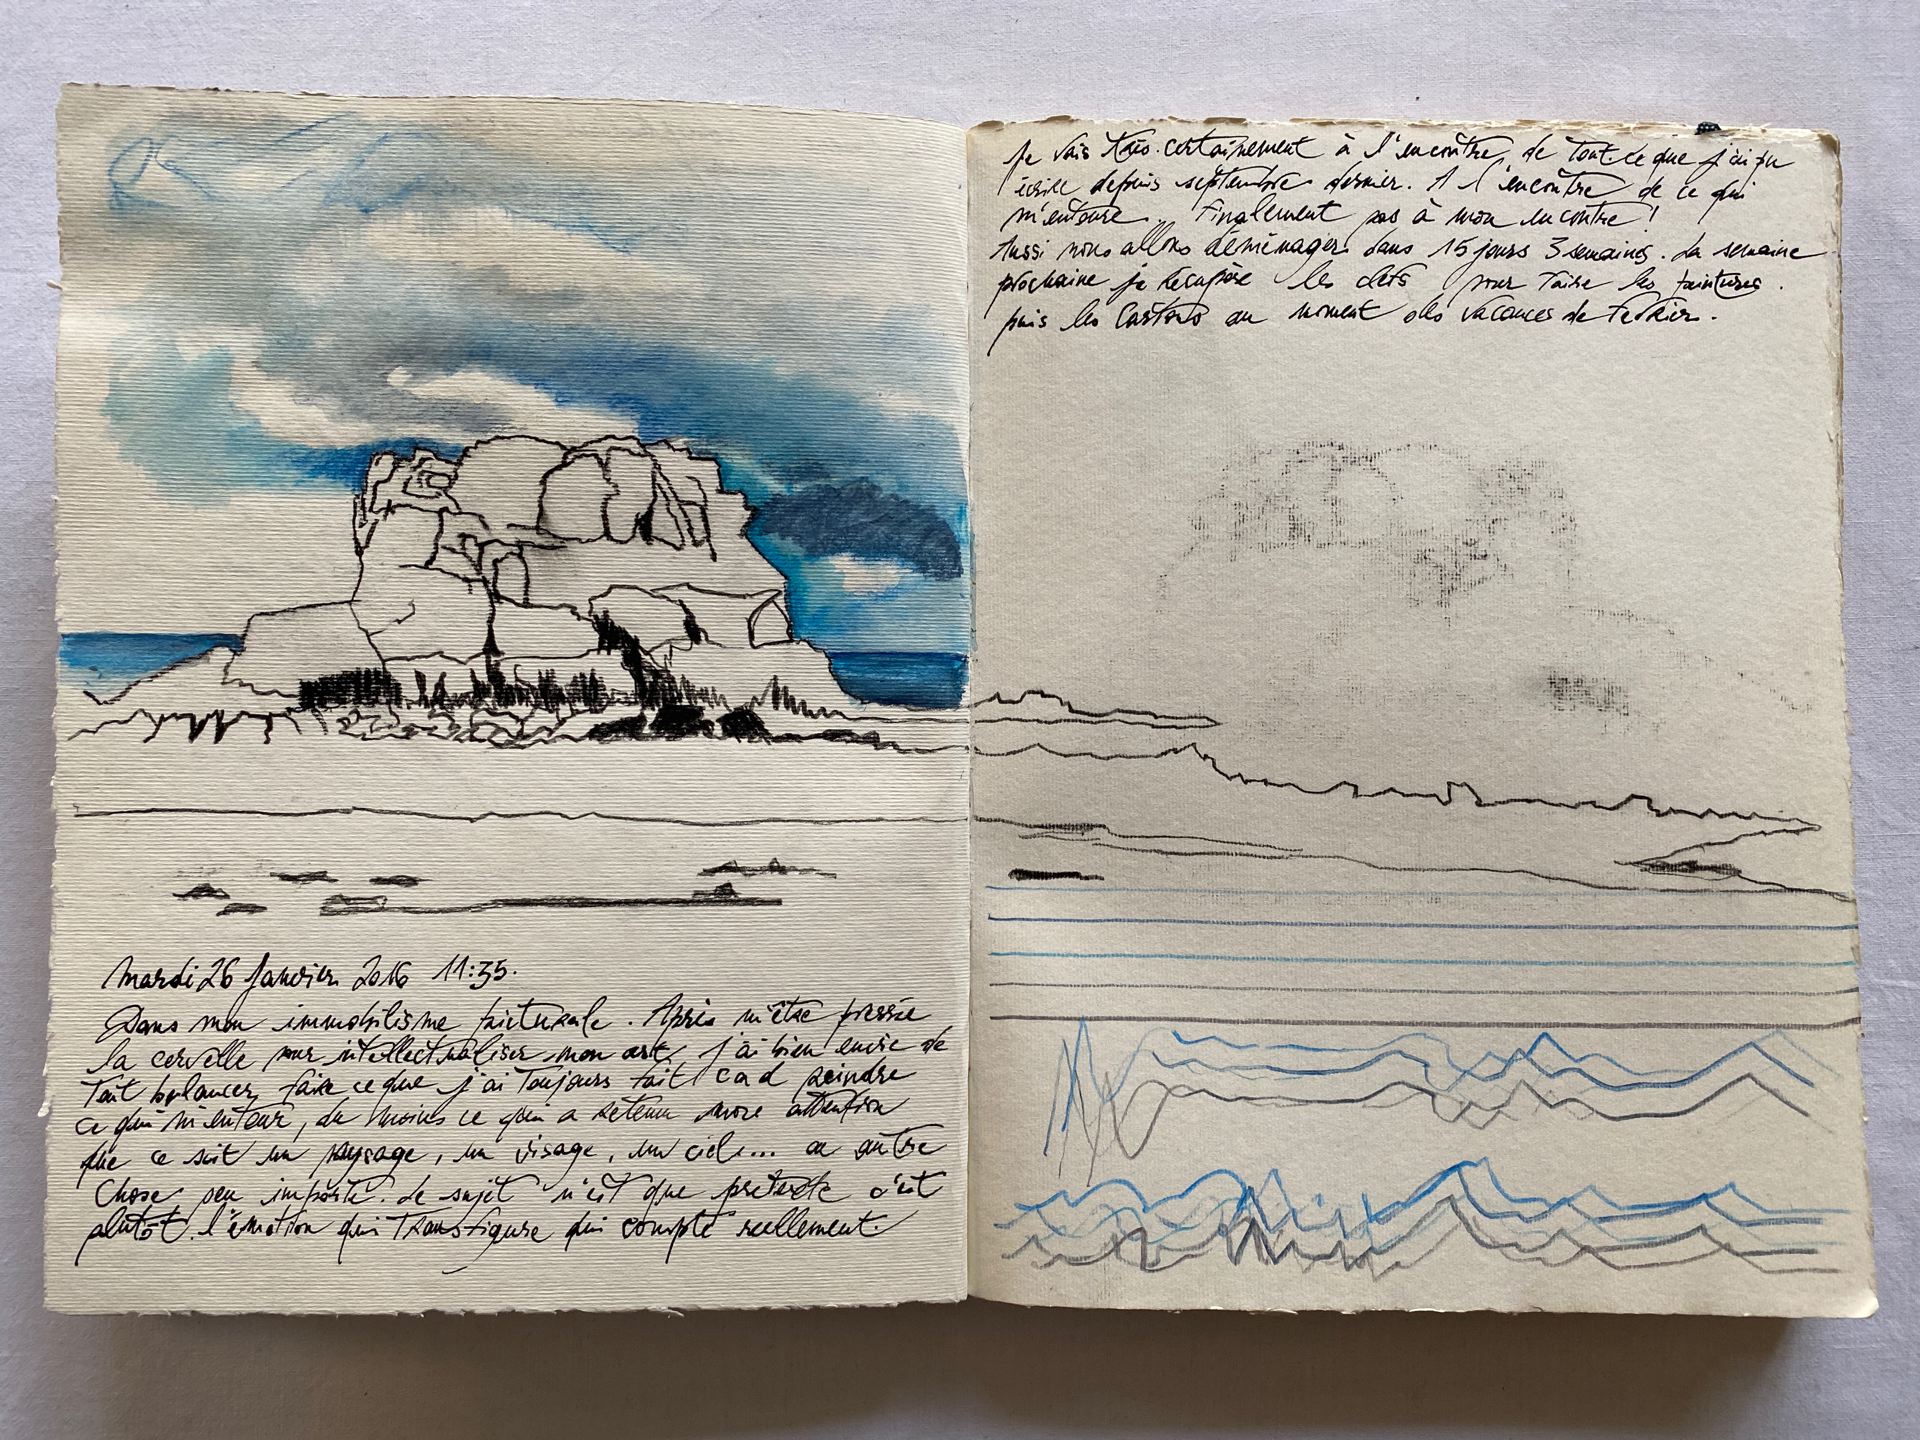 Mardi 26 Janvier 2016 11:35.
Dans mon immobilisme picturale. Après m'être pressée
la cervelle pour intellectualiser mon art, j'ai bien envie de
tout balancer, faire ce que j'ai toujours fait càd peindre
ce qui m'entour, du moins ce qui a retenu mon attention
que ce soit un paysage, un visage, un ciel... ou autre
chose peu importe. Le sujet n'est que prétexte c'est
plutôt l'émotion qui transfigure qui compte réellement.
Je vais très certainement à l'encontre de tout ce que j'ai pu
écrire depuis septembre dernier. A l'encontre de ce qui
m'entoure. Finalement pas à mon encontre !
Aussi nous allons déménager dans 15 jours 3 semaines. La semaine
prochaine je récupère les clefs pour faire les peintures.
puis les cartons au moment des vacances de février.